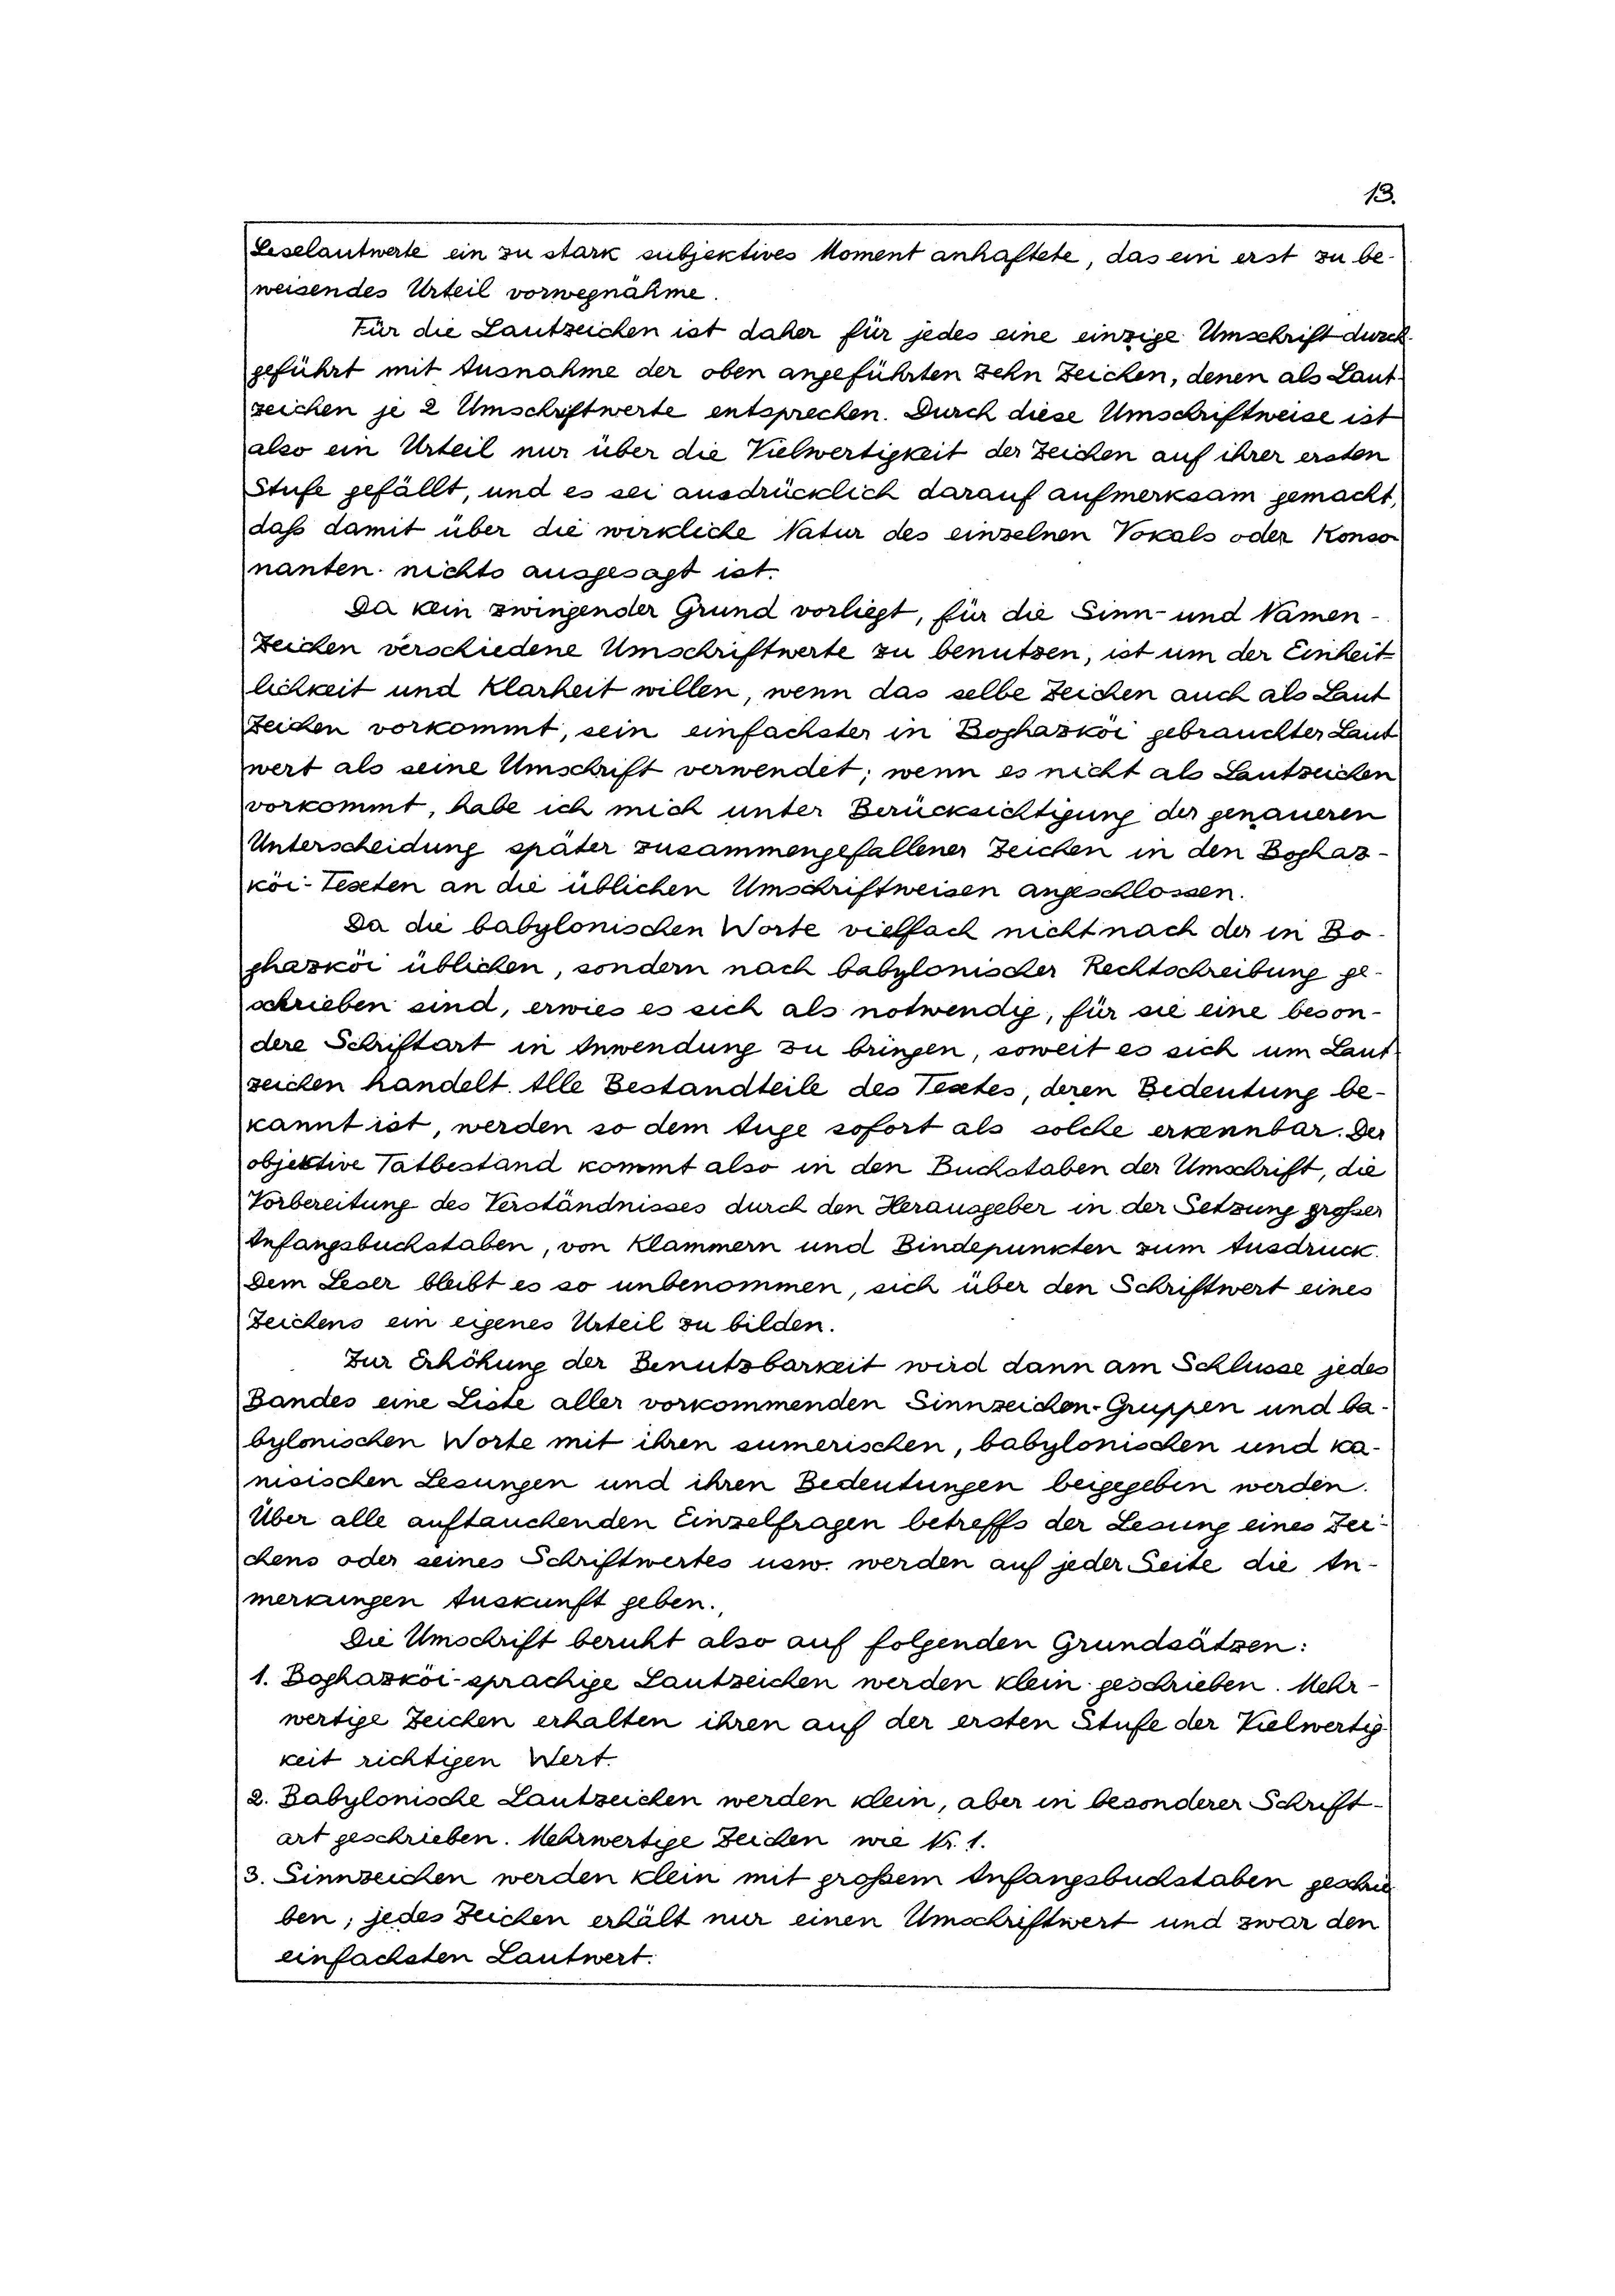 13.
Leselautwerte ein zu stark subjektives Moment anhaftete, das ein erst zu be-
weisendes Urteil vorwegnähme.
Für die Lautzeichen ist daher für jedes eine einzige Umschrift durch-
geführt mit Ausnahme der oben angeführten zehn Zeichen, denen als Laut-
zeichen je 2 Umschriftwerte entsprechen. Durch diese Umschriftweise ist
also ein Urteil nur über die Vielwertigkeit der Zeichen auf ihrer ersten
Stufe gefällt, und es sei ausdrücklich darauf aufmerksam gemacht,
daß damit über die wirkliche Natur des einzelnen Vokals oder Konso-
nanten nichts ausgesagt ist.
Da kein zwingender Grund vorliegt, für die Sinn- und Namen-
Zeichen verschiedene Umschriftwerte zu benutzen, ist um der Einheit-
lichkeit und Klarheit willen, wenn das selbe Zeichen auch als Laut
Zeichen vorkommt, sein einfachster in Boghazköi gebrauchter Laut
wert als seine Umschrift verwendet; wenn es nicht als Lautzeichen
vorkommt, habe ich mich unter Berücksichtigung der genaueren
Unterscheidung später zusammengefallener Zeichen in den Boghaz-
köi-Texten an die üblichen Umschriftweisen angeschlossen.
Da die babylonischen Worte vielfach nicht nach der in Bo-
ghazköi üblichen, sondern nach babylonischer Rechtschreibung ge-
schrieben sind, erwies es sich als notwendig, für sie eine beson-
dere Schriftart in Anwendung zu bringen, soweit es sich um Laut-
zeichen handelt. Alle Bestandteile des Textes, deren Bedeutung be-
kannt ist, werden so dem Auge sofort als solche erkennbar. Der
objektive Tatbestand kommt also in den Buchstaben der Umschrift, die
Vorbereitung des Verständnisses durch den Herausgeber in der Setzung großer
Anfangsbuchstaben, von Klammern und Bindepunkten zum Ausdruck.
Dem Leser bleibt es so unbenommen, sich über den Schriftwert eines
Zeichens ein eigenes Urteil zu bilden.
Zur Erhöhung der Benutzbarkeit wird dann am Schlusse jedes
Bandes eine Liste aller vorkommenden Sinnzeichen-Gruppen und ba-
bylonischen Worte mit ihren sumerischen, babylonischen und ka-
nisischen Lesungen und ihren Bedeutungen beigegeben werden.
Über alle auftauchenden Einzelfragen betreffs der Lesung eines Zei-
chens oder seines Schriftwertes usw. werden auf jeder Seite die An-
merkungen Auskunft geben.
Die Umschrift beruht also auf folgenden Grundsätzen:
1. Boghazköi-sprachige Lautzeichen werden klein geschrieben. Mehr-
wertige Zeichen erhalten ihren auf der ersten Stufe der Vielwertig-
keit richtigen Wert.
2. Babylonische Lautzeichen werden klein, aber in besonderer Schrift-
art geschrieben. Mehrwertige Zeichen wie Nr. 1.
3. Sinnzeichen werden klein mit großem Anfangsbuchstaben geschrie
ben; jedes Zeichen erhält nur einen Umschriftwert und zwar den
einfachsten Lautwert.